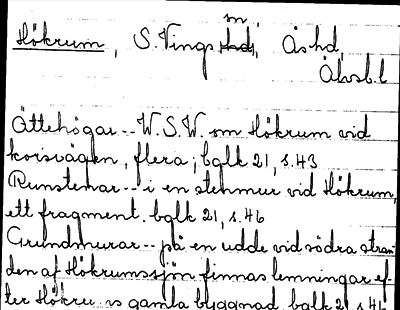 Hökrum, S. Ving sn, Åshd,
Älvsb.l
Ättehögar -- W.S.W. om Hökrum vid
korsvägen, flera; bglk 21, s. 43
Runstenar -- i en stenmur vid Hökrum,
ett fragment. bglk 21, s. 46
Grundmurar -- på en udde vid södra stran-
den af Hökrumssjön finnas lemningar ef-
ter Hökru ns gamla byggnad. bglk 21 s. 46